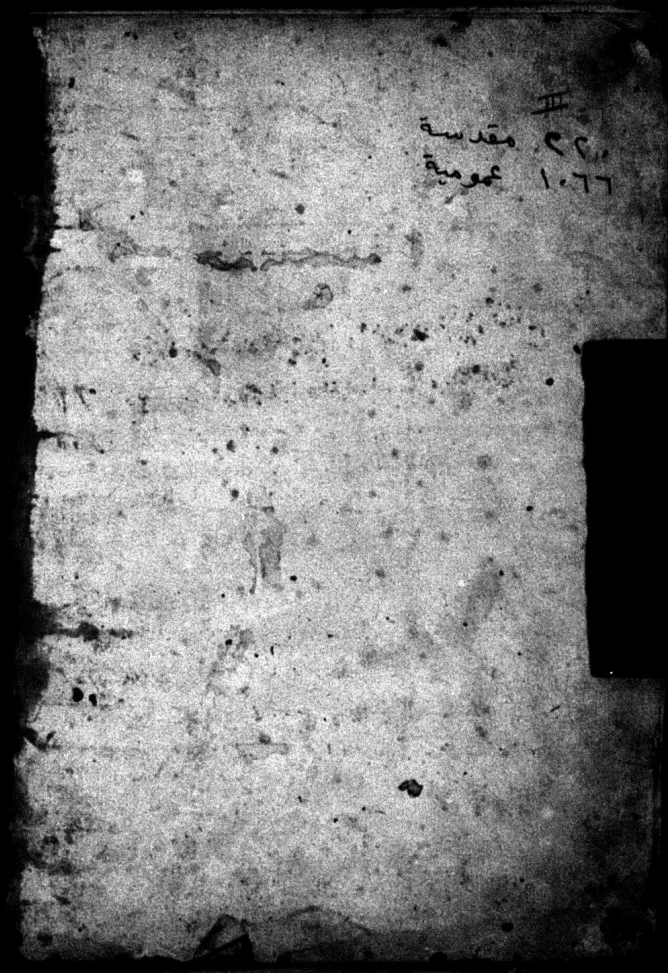 III
٢٢٠ مقدسة
١٠٦٦ عمومية